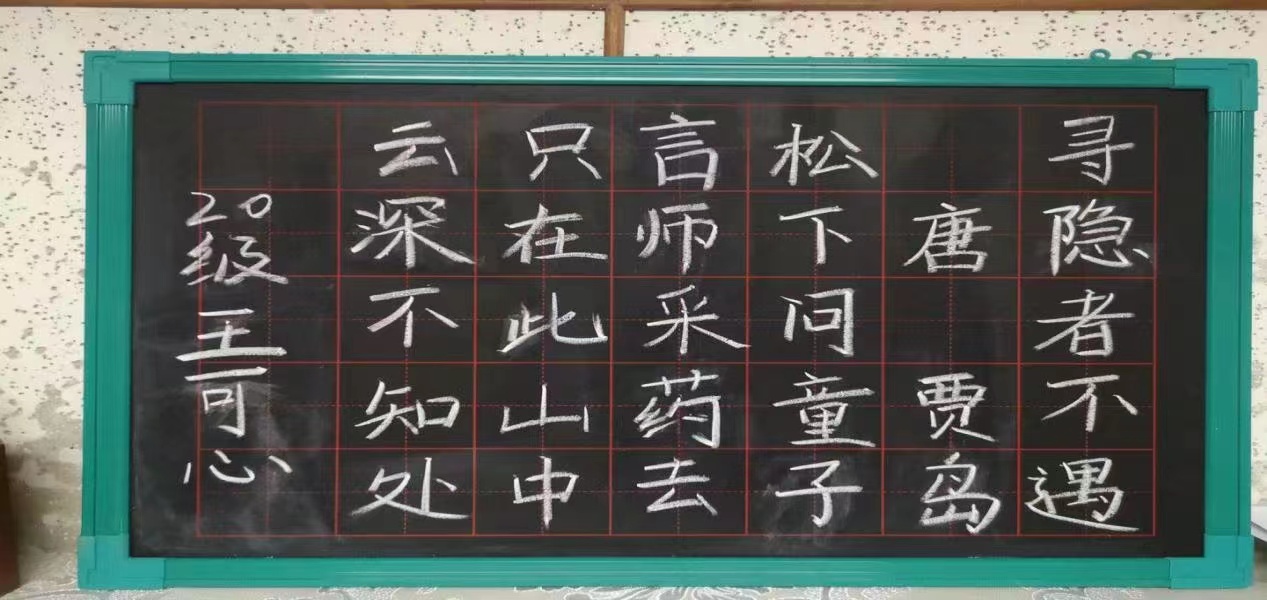 寻隐者不遇
唐 贾岛
松下问童子
言师采药去
只在此山中
云深不知处
20级王可心